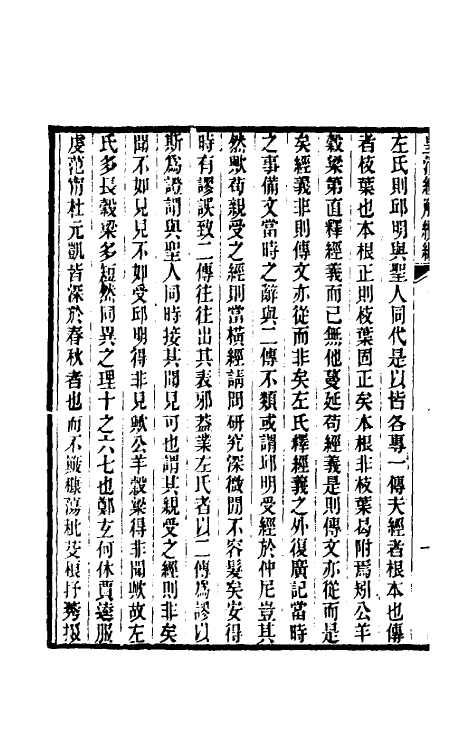 左氏則邱明與聖人同代是以皆各專一傳夫經者根本也傳
者枝葉也本根正則枝葉固正矣本根非枝葉曷附焉矧公羊
穀梁第直釋經義而已無他蔓延苟經義是則傳文亦從而是
矣經義非則傳文亦從而非矣左氏釋經義之外復廣記當時
之事備文當時之辭與二傳不類或謂邱明受經於仲尼豈其
然歟苟親受之經則當橫經請問研究深微間不容髮矣安得
時有謬誤致二傳往往出其表邪蓋業左氏者以二傳為謬以
斯為證謂與聖人同時接其聞見可也謂其親受之經則非矣
聞不如見見不如受邱明得非見歟公羊穀梁得非聞歟故左
氏多長穀梁多短然同異之理十之六七也鄭玄何休賈逵服
虔范甯杜元凱皆深於春秋者也而不簸糠蕩秕芟稂抒莠掇
皇清經解續編
一